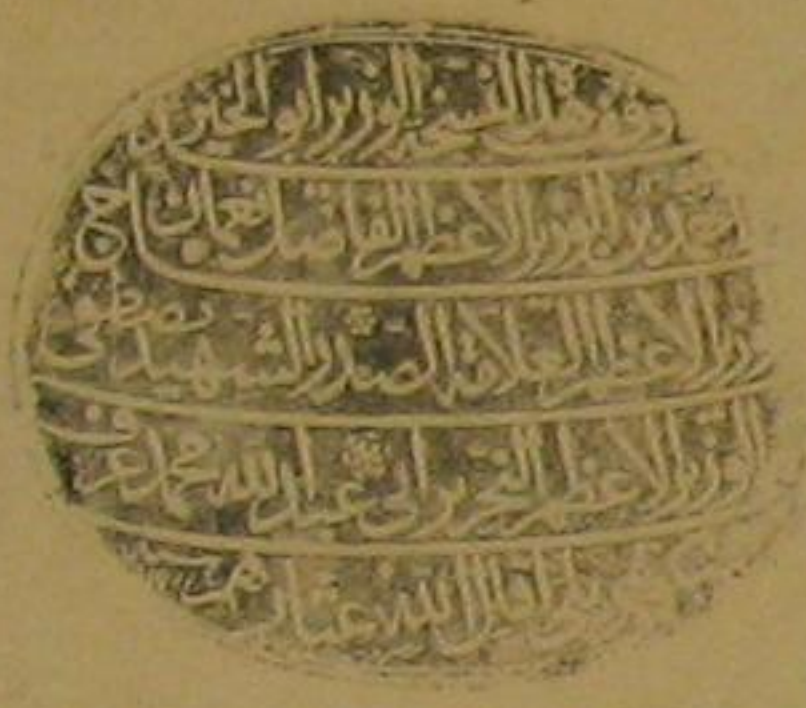 وقف هذه النسخة الوزير أبو الخير
أحمد بن الوزير الأعظم الفاضل نعمان بن
الوزير الأعظم العلامة الصدر الشهيد مصطفى
الوزير الأعظم النحرير أبي عبد الله محمد عرف
أقال الله عثارهم